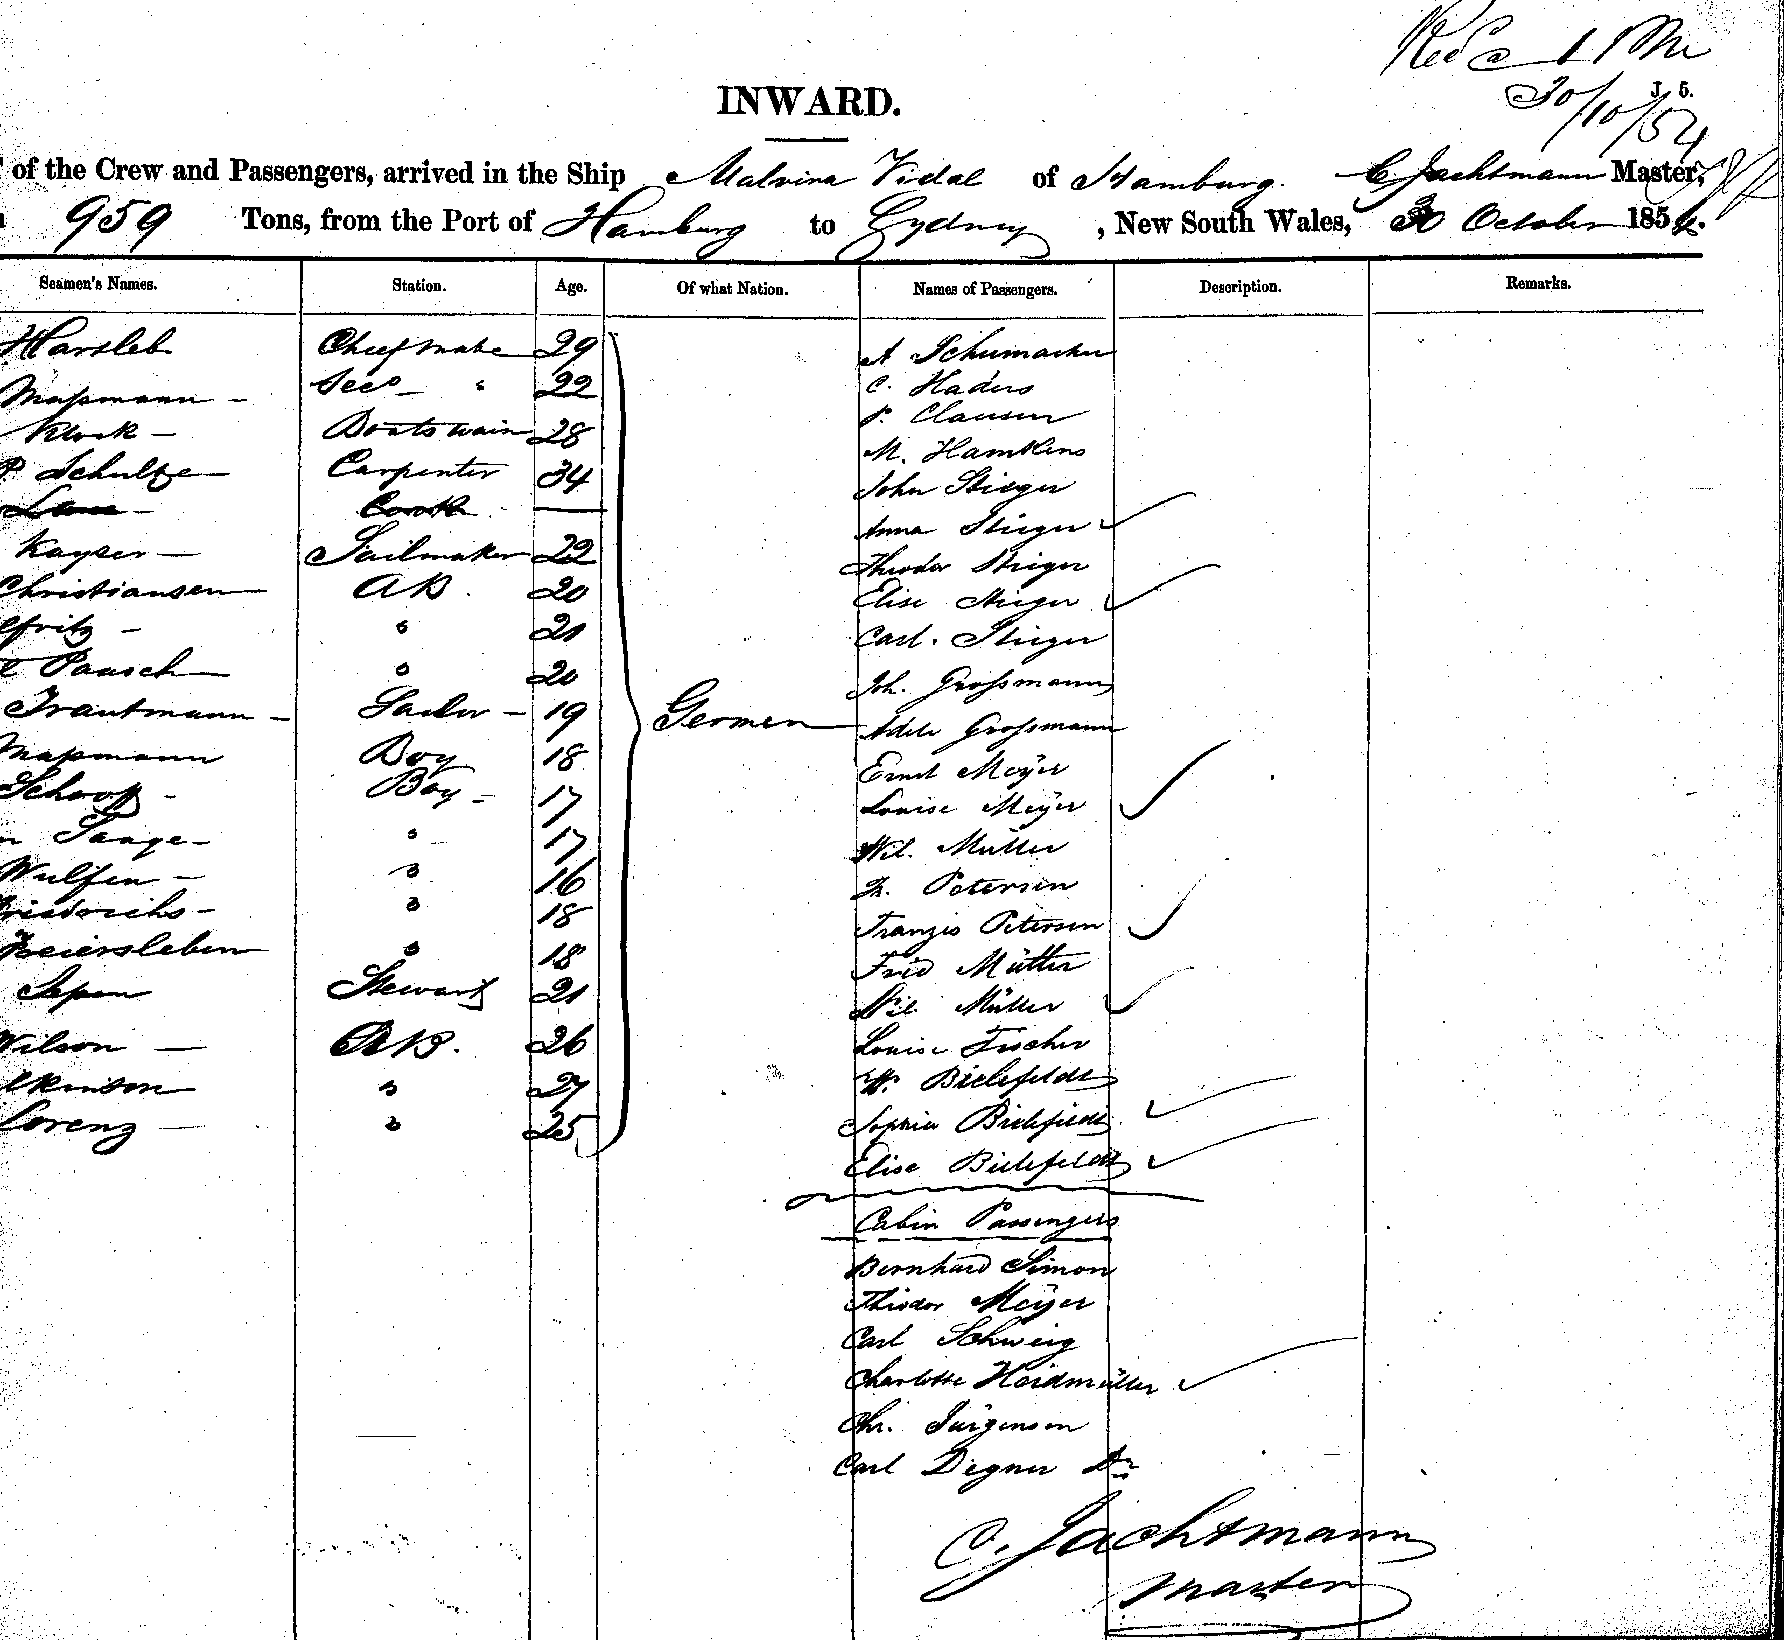 Recd 1 PM
30/10/54
J. 5.
INWARD.
of the Crew and Passengers, arrived in the Ship Malvina Vidal of Hamburg. C. Jachtmann Master,
959 Tons, from the Port of Hamburg to Sydney, New South Wales, 30 October 1854.
Seamen's Names. Station. Age. Of what Nation. Names of Passengers. Description. Remarks.
Harsleb Chief mate 29 A Schumacher
Massmann - Secd - " 22 C. Haders
Klock - Boatswain 28 P. Clausen
P Schultze - Carpenter 34 M. Hamkens
Cook - John Stieger
Kayser - Sailmaker 22 Anna Stieger
Christiansen AB. 20 Theodor Stieger
fritz - " 21 Elise Stieger
Paasch " 20 Carl. Stieger
Trautmann - Sailor - 19 German Joh. Grossmann
Massmann Boy 18 Adele Grossmann
Schoof - Boy - 17 Ernst Meÿer
Tange - " 17 Louise Meÿer
Wulfen - " 16 Wil. Müller
Friedrichs - " 18 Petersen
Feiersleben " 18 Franzis Petersen
Jepen Stewart 21 Fried Müller
Wilson - AB. 26 Wil Müller
lkinson " 27 Louise Fischer
Lorenz - " 25 W. Bielefeldt
Sophia Bielefeldt
Elise Bielefeldt
Cabin Passengers
Bernhard Simon
Theodor Meÿer
Carl Schweig
Charlotte Heidmüller
Chr. Jürgensen
Carl Degner Dr
C. Jachtmann
Master